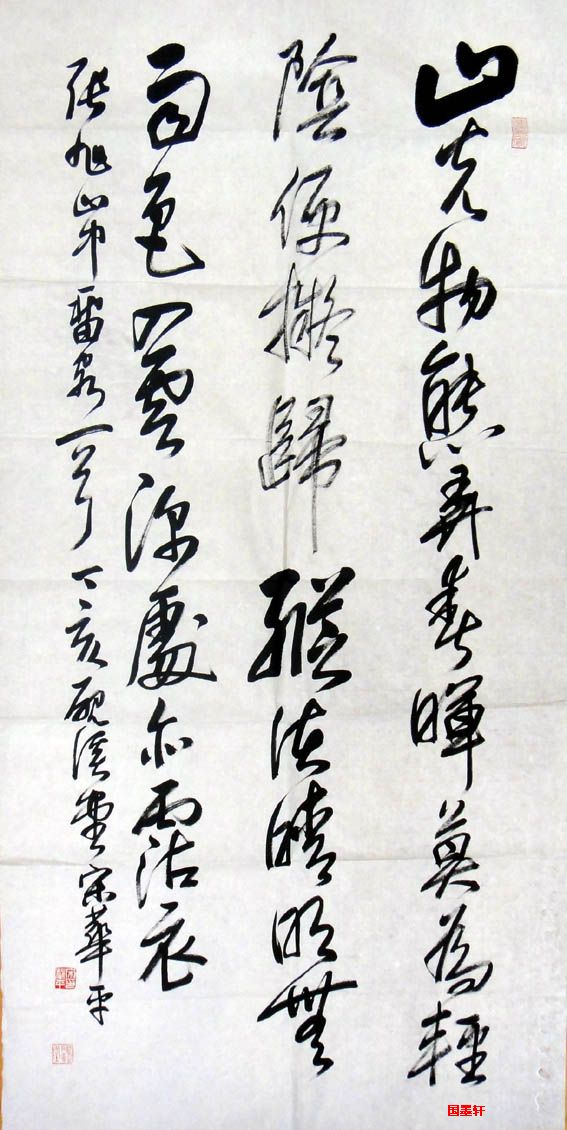 山光物態弄春暉莫為輕
陰便擬歸縱使晴明無
雨色入雲深處亦霑衣
張旭山中留客一首丁亥硯溪堂宋華平
国墨轩